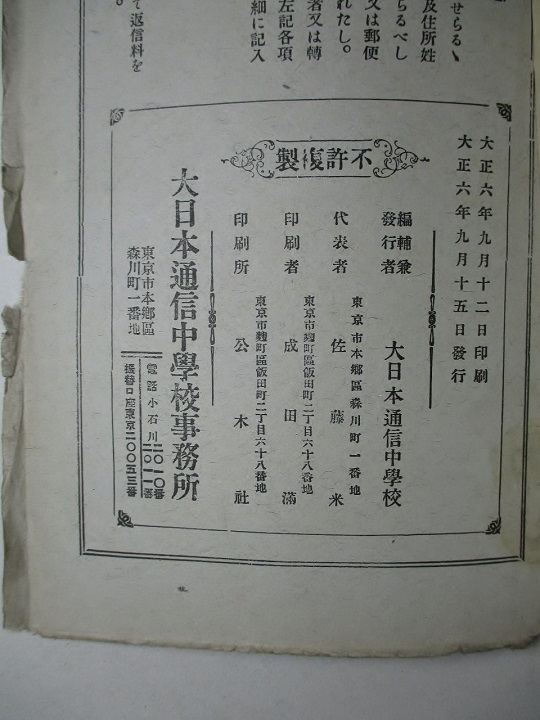 せらるゝ
及住所姓
らるべし
又は郵便
れたし。
者又は轉
左記各項
細に記入
て返信料を
。
大正六年九月十二日印刷
大正六年九月十五日發行
不許複製
編輯兼
發行者
大日本通信中學校
東京市本鄕區森川町一番地
代表者 佐藤米
東京市麴町區飯田町二丁目六十八番地
印刷者 成田滿
東京市麴町區飯田町二丁目六十八番地
印刷所 公木社
大日本通信中學校事務所
東京市本鄕區
森川町一番地
電話小石川
二〇一〇番
二〇一一番
振替口座東京二〇〇五三番